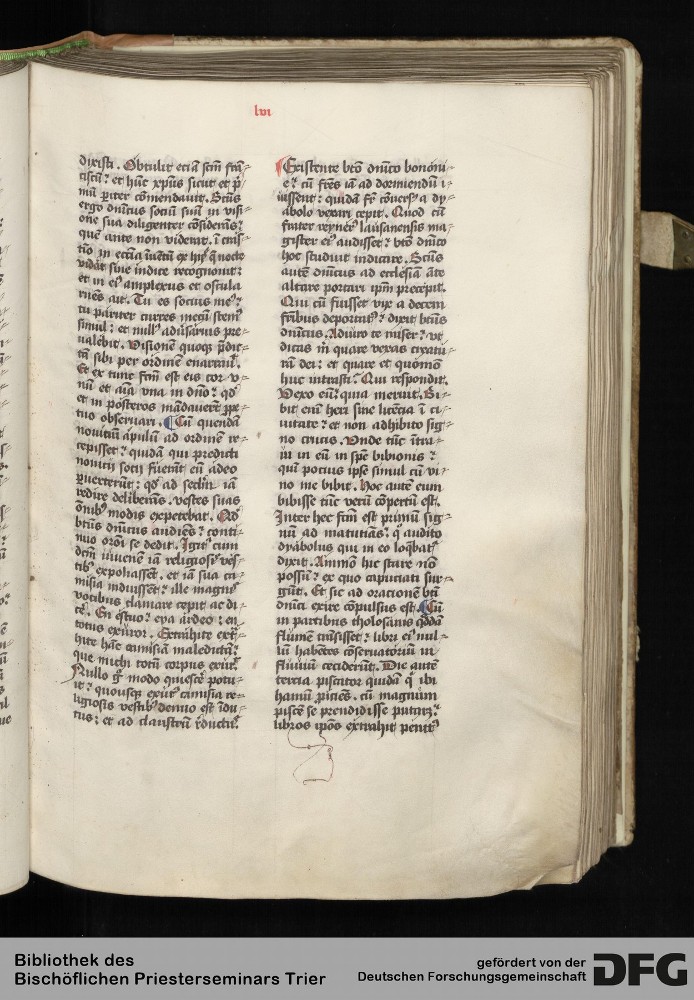 lvi
dixisti . Obtulit etiā sctm̄ frā⸗
ciscū ? et hūc xp̄us sicut et p̄
mū pit̄er cōmendavit . Sctūs
ergo dn̄icus sociū suū in visi⸗
one sua diligenter cōsiderās ?
quē ante non viderat . ī cras⸗
tīo in ecc̄ia
vidāt sine indice recognovit ?
et in eiꝰ amplexus et oscula
ruēs ait . Tu es socius meꝰ ?
tu pariter curres mecū stemꝰ
simul : et nullꝰ adūsariꝰ pre⸗
valebit . Visionem quoqꝫ p̄dic⸗
tā sibi per ordinē enarravit .
Et ex tunc fctm̄ est eis cor v⸗
nū et aīa vna in dn̄o ? qd̓
et in posteros mādaverūt ꝑpe⸗
tuo observari . ¶ Cū quendā
novitiū apulū ad ordinē re⸗
cepisset ? quidā qui predicti
novitij socij fuerāt eū adeo
ꝑverterūt : qd̓ ad sectm̄ iā
redire deliberās . vestes suas
om̄ibꝰ modis expetebat . Qd̓
btūs dn̄icus audiēs ? conti⸗
nuo orōi se dedit . Igit̄ cum
dctm̄ iuvenē iā religiosꝭ ves⸗
tibꝰ expoliassēt . et iā sua ca⸗
misia induissēt ? ille magnꝭ
vocibus clamare cepit ac di⸗
cē . En estuo ? eya ardeo ? en
totus exuror . Extrahite ext̄⸗
hite hāc camisiā maledictā ?
que michi totū corpus exurit̄
Nullo ḡ modo quiescē potu⸗
it ? quousqꝫ exutꝰ camisia re⸗
ligiosis vestibꝰ denuo est īdu⸗
tus : et ad claustrū rductꝰ .
Existente bt̄o dn̄ico bononi⸗
e ? cū frēs iā ad dormiendū i⸗
uissent : quidā fr̄ cōuersꝰ a dy⸗
abolo vexari cepit . Quod cū
frater reynerꝰ lausanensis ma⸗
gister eiꝰ audisset ? bt̄o dn̄ico
hoc studuit indicare . Sctūs
autē dn̄icus ad ecclesiā āte
altare portari ip̄m precepit .
Qui cū fuisset vix a decem
frībus deportatꝰ ? dixit btūs
dn̄icus . Adiuro te miser ? vt
dicas m̄ quare vexas c̄xatu⸗
rā dei : et quare et quōmō
huc intrasti . Qui respondit .
Vexo eū ? quia meruit . Bi⸗
bit enī heri sine licētia ī ci⸗
uitate ? et non adhibito sig⸗
no crucis . Vnde tūc ītra⸗
ui in eū in spē bibionis ?
quī potius ipse simul cū vi⸗
no me bibit . Hoc autē eum
bibisse tūc verū cōpertū est .
Inter hec fctm̄ est primū sig⸗
nū ad matutīas ? q̄ audito
dyābolus qui in eo loq̄batꝰ
dixit . Ammō hic stare nō
possū ? ex quo capuciati sur⸗
gūt . Et sic ad oracionē btī
dn̄ici exire cōpulsus est . ¶ Cū
in partibus tholosanis qd̄dā
flumē trāsisset ? libri eiꝰ nul⸗
lū habētes cōservatoriū in
fluviū ceciderūt . Die autē
tercia piscator quidā q̄ ibi
hamū ꝓiciēs . cū magnum
piscē se prendidisse putaret̄ ?
libros ip̄os extrahit penitꝰ
Bibliothek des
Bischöflichen Priesterseminars Trier
gefördert von der
Deutschen Forschungsgemeinschaft
DFG